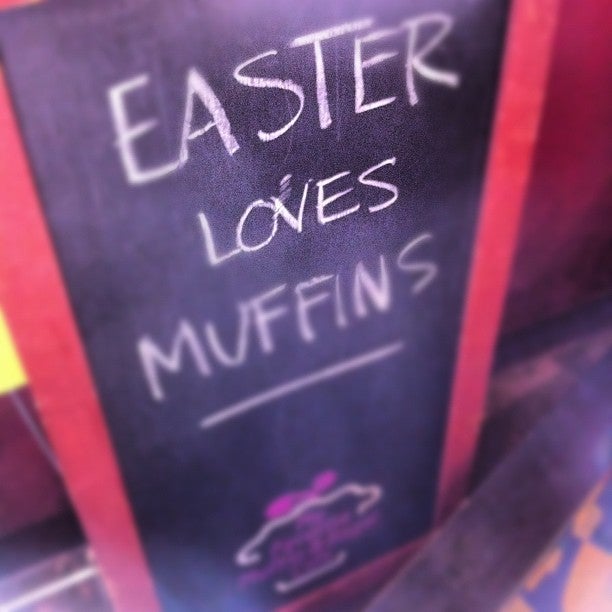 EASTER
LOVES
MUFFINS